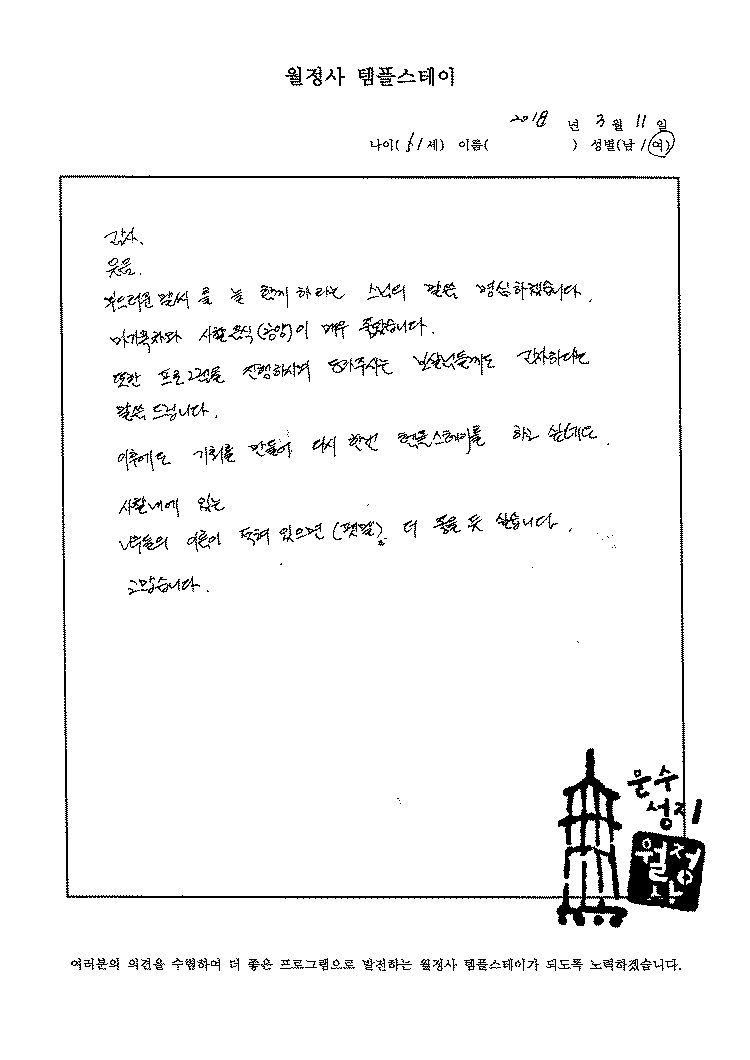 월정사 템플스테이
2018 년 3 월 11 일
나이( 51 세) 이름( ) 성별(남 / 여)
감사,
웃음.
부드러운 말씨를 늘 함께 하라는 스님의 말씀 명심하겠습니다.
사찰음식(공양)이 매우 좋았습니다.
또한 프로그램을 진행하시며 도와주시는 보살님들께도 감사하다는
말씀 드립니다.
이후에도 기회를 만들어 다시 한번 템플스테이를 하고 싶네요.
사찰내에 있는
나무들의 이름이 적혀 있으면 (팻말) 더 좋을 듯 싶습니다.
고맙습니다.
문수
성지
월정
사
여러분의 의견을 수렴하여 더 좋은 프로그램으로 발전하는 월정사 템플스테이가 되도록 노력하겠습니다.